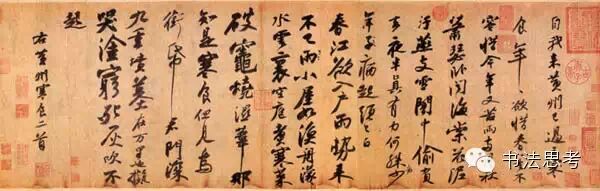 自我來黃州已過三寒
食年〻欲惜春〻去不
容惜今年又苦雨兩月秋
蕭瑟卧聞海棠花泥
汙燕支雪闇中偷負
去夜半真有力何殊少
年子病起頭已白
春江欲入户雨勢來
不已雨小屋如漁舟濛〻
水雲裏空庖煮寒菜
破竈燒濕葦那
知是寒食但見烏
銜帋君門深
九重墳墓在万里也擬
哭塗窮死灰吹不
起
右黃州寒食二首
书法思考